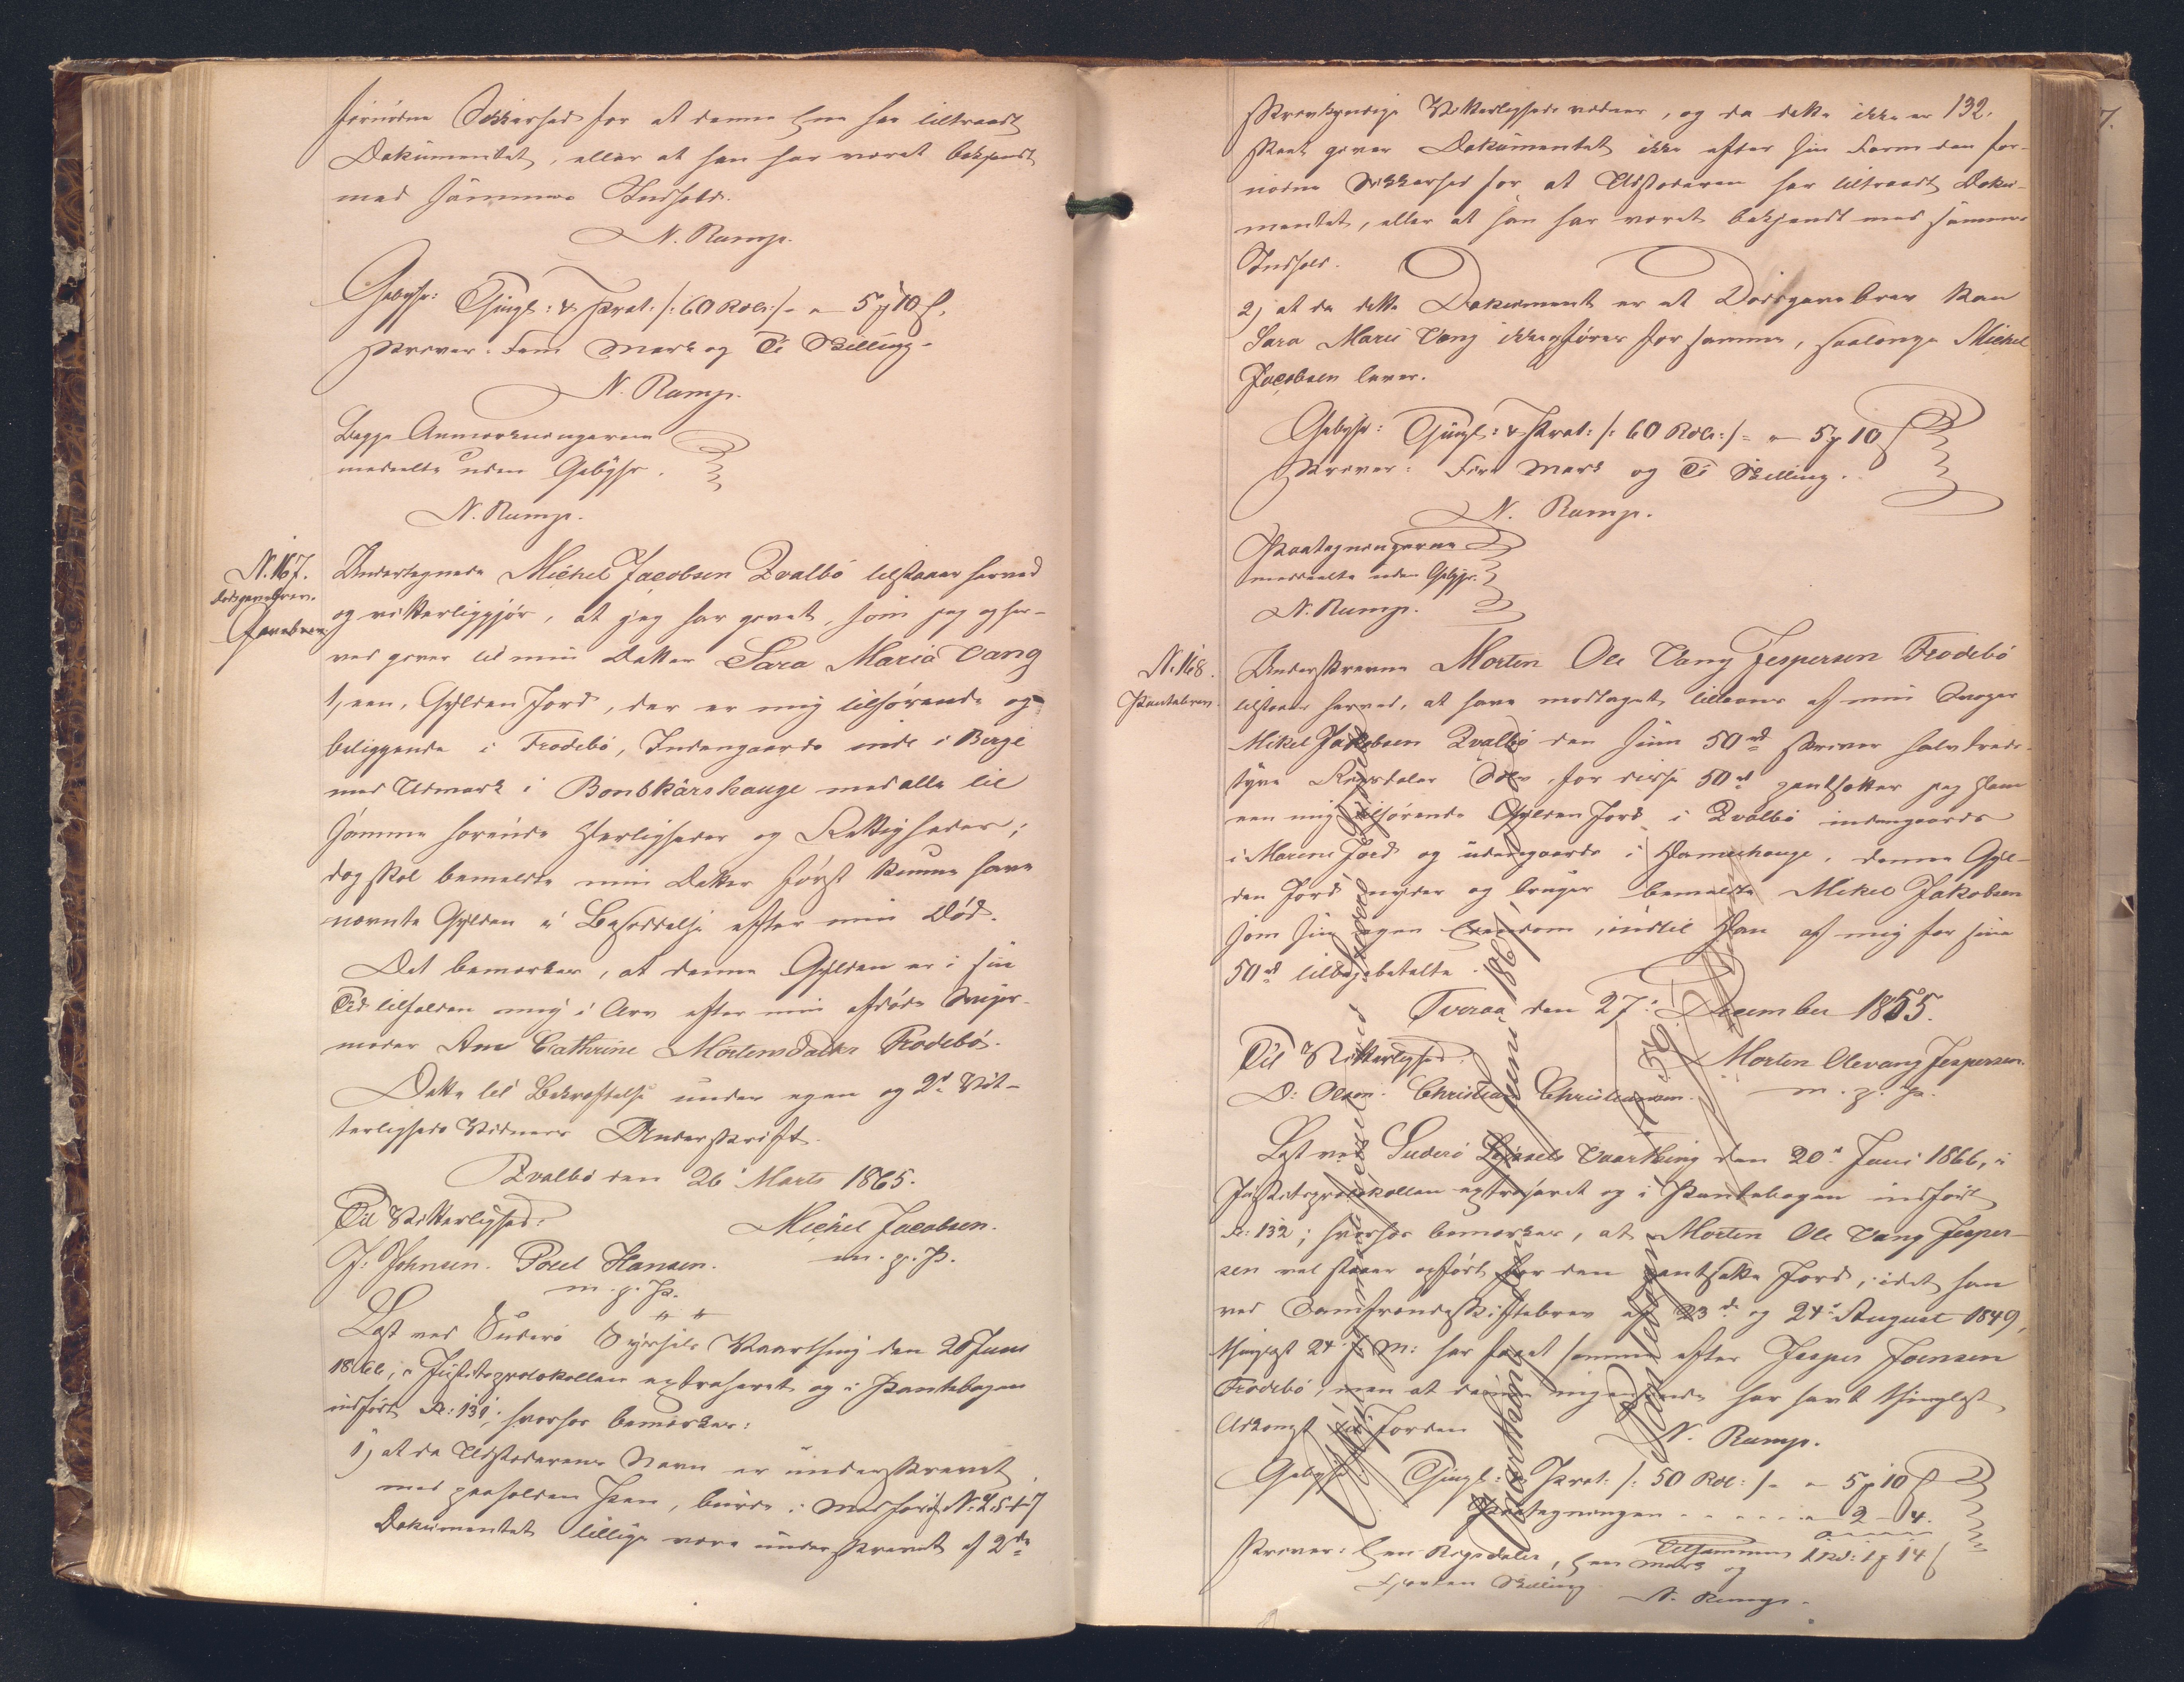 fornødne Sikkerhed for at denne har tiltraadt
Dokumentet, eller at han har været bekjendt
med sammes Indhold.
N. Rump.
Gebyhr: Thingl: & Prot: /: 60 Rdlr :/ - 5 ƶ 10 ſ.
skriver: Fem Mark og Ti Skilling.
N. Rump.
Begge Anmærkningerne
meddelte uden Gebyhr.
N. Rump.
N. 167.
Dødsgavebrev.
Gavebrev
Undertegnede Michel Jacobsen Qvalbö tilstaaer herved
og vitterliggjör, at jeg har givet, som jeg og her-
ved giver til min Datter Sara Maria Vang
1, een, Gylden Jord, der er mig tilhörende og
beliggende i Frodebö, Indengaards inde i Berge
med Udmark i Bonskårshauge med alle til
samme hørende Herligheder og Rettigheder;
dog skal bemeldte min Datter først kunne have
nævnte Gylden i Besiddelse efter min Død.
Det bemærkes, at denne Gylden er i sin
Tid tilfalden mig i Arv efter min afdøde Sviger-
moder Ane Cathrine Mortensdatter Frodebö.
Dette til Bekræftelse under egen og 2de Vit-
terligheds Vidners Underskrift.
Qvalbö den 26 Marts 1865.
Til Vitterlighed:
Michel Jacobsen.
J. Johnsen. Poul Hansen.
m. p. P.
m. p. P.
Læst ved Suderö Syssels Vaarthing den 20 Juni
1866, i Justitsprotokollen extraheret og i Pantebogen
indfört N: 131; hvorhos bemærkes:
1) at da Udstederens Navn er underskrevet
med paaholden Pen, burde i Medhold N. L. 5-1-7
Dokumentet tillige være underskrevet af 2de
132.
skrivkyndige Vitterligheds vidner, og da dette ikke er
skeet giver Dokumentet ikke efter sin Form den for-
nødne Sikkerhed for at Udstederen har tiltraadt Doku-
mentet, eller at han har været bekjendt med sammes
Indhold.
2) at da dette Dokument er et Dödsgavebrev kan
Sara Marie Vang ikke opføres for samme, saalænge Michel
Jacobsen lever.
Gebyhr: Thingl: & Prot: /: 60 Rdlr :/ - 5 ƶ 10 ſ
skriver: Fem Mark og Ti Skilling.
N. Rump.
Paategningerne
meddeelte uden Gebyhr.
N. Rump.
N. 168.
Pantebrev.
Underskrevne Morten Ole Vang Jespersen Frodebö
tilstaaer herved, at have modtaget tillaans af min Svoger
Mikel Jakobsen Qvalbö den Sum 50 rd skriver halvtreds-
tyve Rigsdaler Sölv, for disse 50 rd pantsætter jeg ham
een mig tilhörende Gylden Jord i Qvalbö indengaards
i Marens Jord og udengaards i Hamershauge, denne Gyl-
den Jord nyder og bruger bemeldte Mikel Jakobsen
som sin egen Eiendom, indtil Han af mig faar sine
50 rd tilbagebetalte.
Tveraa den 27: December 1855.
Til Vitterlighed:
Morten Olevang Jespersen.
D: Olsen. Christian Christiansen.
m. p. P.
Læst ved Suderö Syssels Vaarthing den 20de Juni 1866, i
Justitsprotokollen extraheret og i Pantebogen indfört
N: 132; hvorhos bemærkes, at Morten Ole Vang Jesper-
sen vel staaer opfört for den pantsatte Jord, idet han
ved Samfrændeskiftebrev af 23de og 24de August 1849,
thinglæst 24 s. M: har faaet samme efter Jesper Joensen
Frodebö, men at denne ingensinde har havt thinglæst
Adkomst til Jorden
N. Rump.
Gebyhr: Thingl: & Prot: /: 50 Rdl: / - - 5 ƶ 10 ſ
Paategningen - - - - - 2 - 4.
Tilsammen 1 Rd: 2 ƶ 14 ſ
skriver: Een Rigsdaler, Mark og
Fjorten Skilling.
N. Rump.